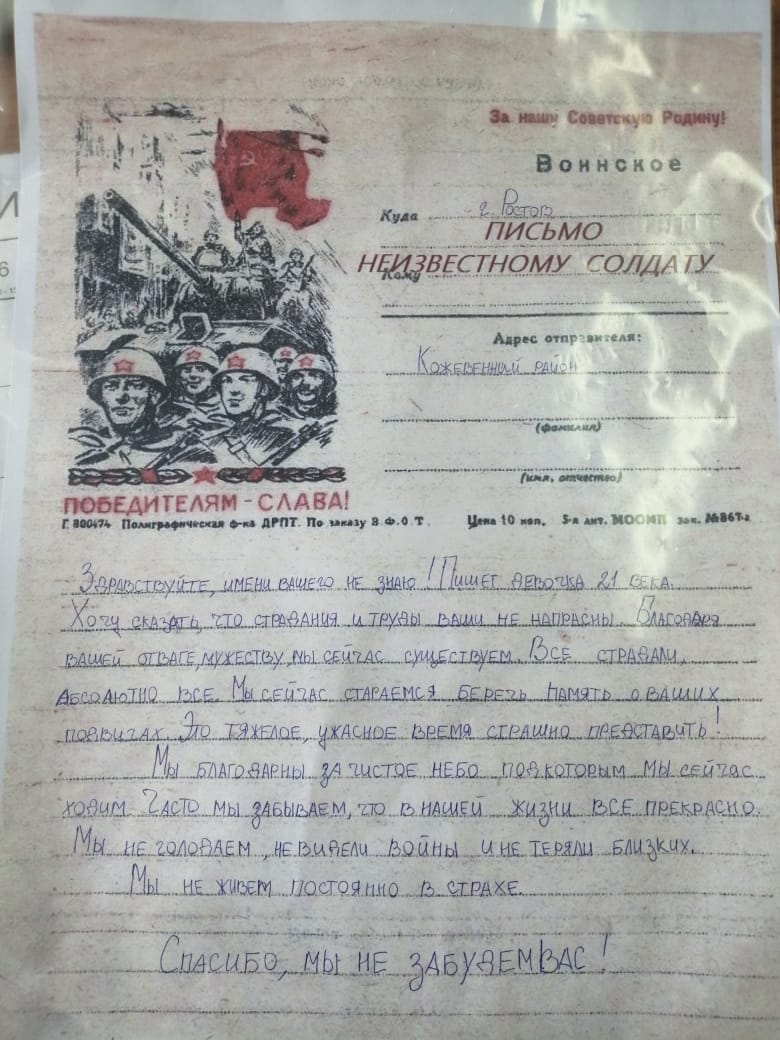 За нашу Советскую Родину!
Воинское
Куда г. Ростов
ПИСЬМО
НЕИЗВЕСТНОМУ СОЛДАТУ
Кому
Адрес отправителя:
Кожевенный район
(фамилия)
(имя, отчество)
ПОБЕДИТЕЛЯМ - СЛАВА!
Г. 800474 Полиграфическая ф-ка ДРПТ. По заказу В.Ф.О.Т. Цена 10 коп. 5-я лит. МООМП зак. №867-а
Здравствуйте, имени вашего не знаю! Пишет девочка 21 века.
Хочу сказать, что страдания и труды ваши не напрасны. Благодаря
вашей отваге, мужеству, мы сейчас существуем. Все страдали,
абсолютно все. Мы сейчас стараемся беречь память о ваших
подвигах. Это тяжелое, ужасное время страшно представить!
Мы благодарны за чистое небо под которым мы сейчас
ходим. Часто мы забываем, что в нашей жизни все прекрасно.
Мы не голодаем, не видели войны и не теряли близких.
Мы не живем постоянно в страхе.
Спасибо, мы не забудем вас!
И
6